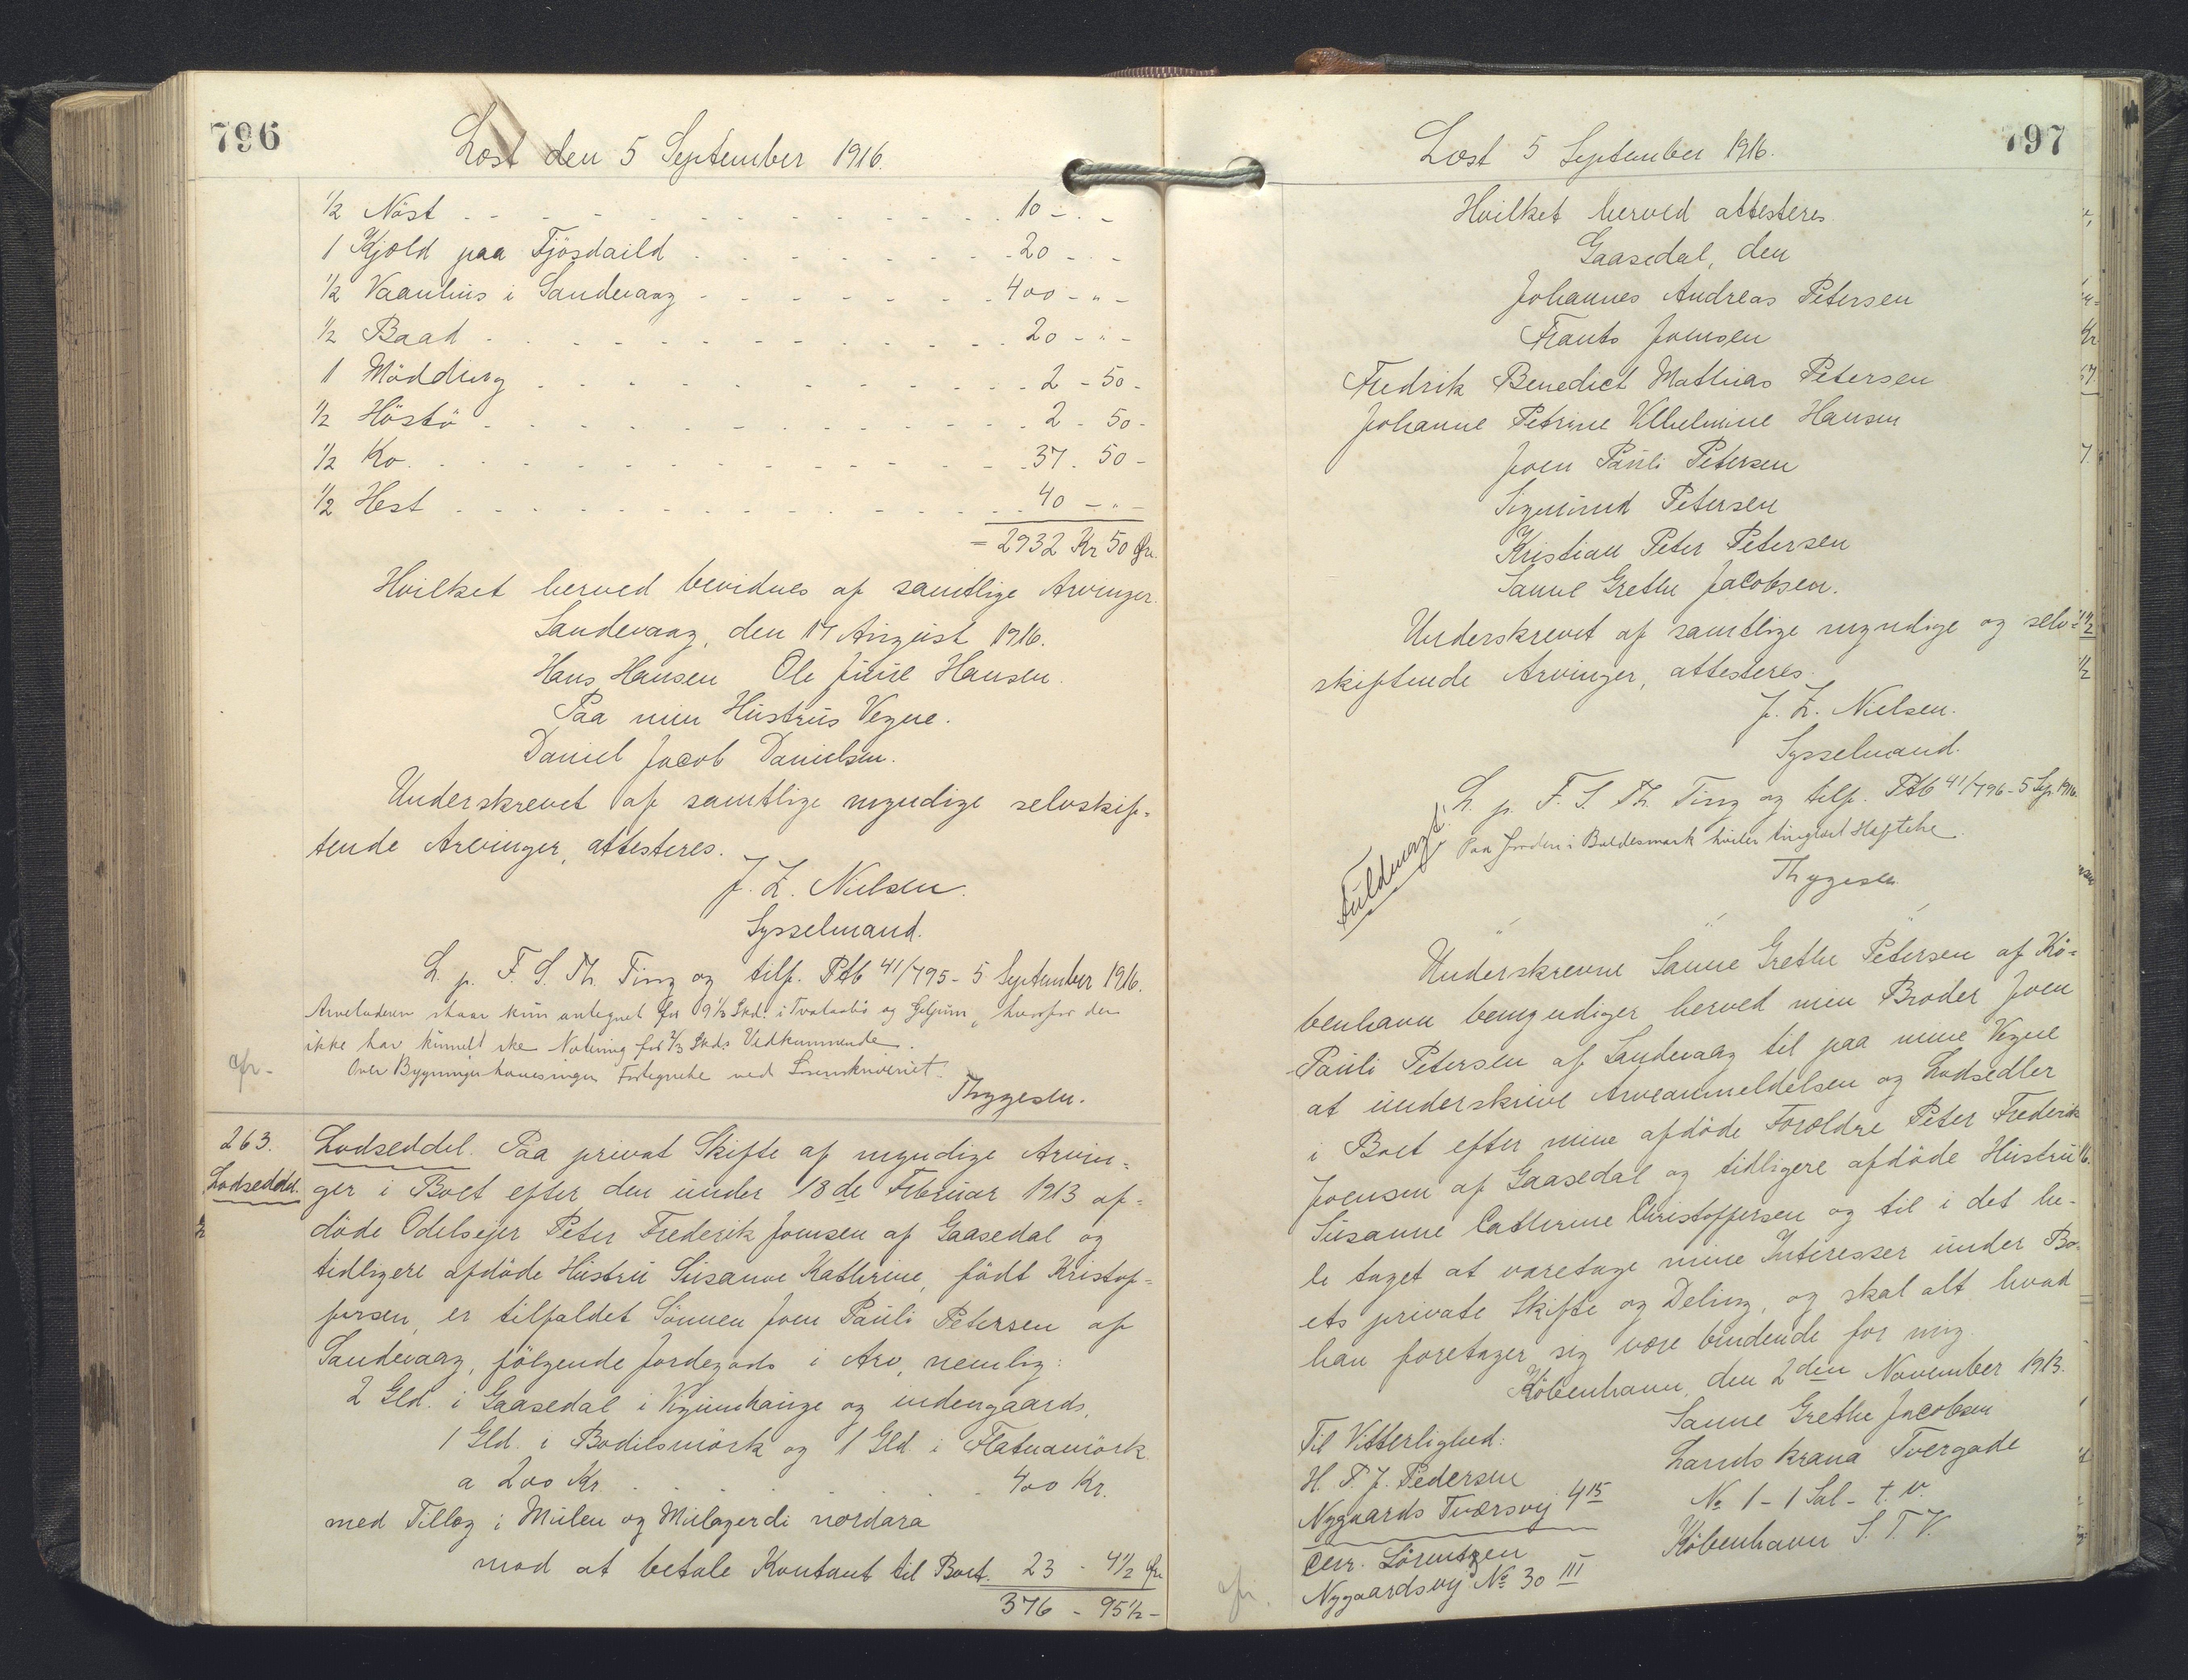 796
Læst den 5 September 1916.
1/2 Nöst 10 - . -
1 Kjæld paa Fjösdaild 20 - . -
1/2 Vaanhus i Sandevaag 400 - " -
1/2 Baad 20 - " -
1 Mödding 2 - 50 -
1/2 Höstö 2 - 50 -
1/2 Ko 37 . 50 -
1/2 Hest 40 - " -
= 2932 Kr 50 Øre
Hvilket herved bevidnes af samtlige Arvinger.
Sandevaag, den 17 August 1916.
Hans Hansen Ole Juul Hansen.
Paa min Hustrus Vegne.
Daniel Jacob Danielsen.
Underskrevet af samtlige myndige selvskif-
tende Arvinger, attesteres.
J. Z. Nielsen.
Sysselmand.
L. p. F. S. Th. Ting og tilf. Ptb 41/795 - 5 September 1916.
Arveladeren staar kun antegnet for 9 1/3 Skd. i Tvataabö og Giljum, hvorfor der
ikke har kunnet ske Notering for 2/3 Skds Vedkommende.
Over Bygninger haves ingen Fortegnelse ved Sorenskriveriet.
Thygesen.
cfr.
263.
Lodseddel.
Lodseddel. Paa privat Skifte af myndige Arvin-
ger i Boet efter den under 18de Februar 1913 af-
döde Odelsejer Peter Frederik Joensen af Gaasedal og
tidligere afdöde Hustru Susanne Kathrine, födt Kristof-
fersen, er tilfaldet Sönnen Joen Pauli Petersen af
Sandevaag, fölgende Jordegods i Arv, nemlig:
2 Gld. i Gaasedal i Viguinhauge og indengaards,
1 Gld. i Bodilsmörk og 1 Gld. i Flatnamörk
a 200 Kr. 400 Kr.
med Tillæg i Mulen og Mulagerdi nordara
mod at betale Kontant til Boet. 23 - 4 1/2 Øre
376 - 95 1/2 -
797
Læst 5 September 1916.
Hvilket herved attesteres
Gaasedal, den
Johannes Andreas Petersen
Frants Joensen
Fredrik Benedict Mathias Petersen
Johanne Petrine Vilhelmine Hansen
Joen Pauli Petersen
Sigmund Petersen
Kristian Peter Petersen
Sanne Grethe Jacobsen.
Underskrevet af samtlige myndige og selv-
skiftende Arvinger, attesteres.
J. Z. Nielsen.
Sysselmand.
L. p. F. S. Th. Ting og tilf. Ptb 41/796 - 5 Sep. 1916.
Paa Jorden i Boldesmørk hviler tinglæst Hæftelse.
Thygesen
Fuldmagt.
Underskrevne Sanne Grethe Petersen af Kö-
benhavn bemyndiger herved min Broder Joen
Pauli Petersen af Sandevaag til paa mine Vegne
at underskrive Arveanmeldelsen og Lodsedler
i Boet efter mine afdöde Forældre Peter Frederik
Joensen af Gaasedal og tidligere afdöde Hustru
Susanne Cathrine Christoffersen og til i det he-
le taget at varetage mine Interesser under Bo-
ets private Skifte og Deling, og skal alt hvad
han foretager sig være bindende for mig.
Köbenhavn, den 2den November 1913.
Sanne Grethe Jacobsen
Landskrona Tvergade
No 1 - 1 Sal - t. v.
Köbenhavn S. T. V.
Til Vitterlighed:
H. P. J. Pedersen
Nygaards Tværsvej 4 15
Chr. Lörentzen
Nygaardsvej No 30 III
cfr.